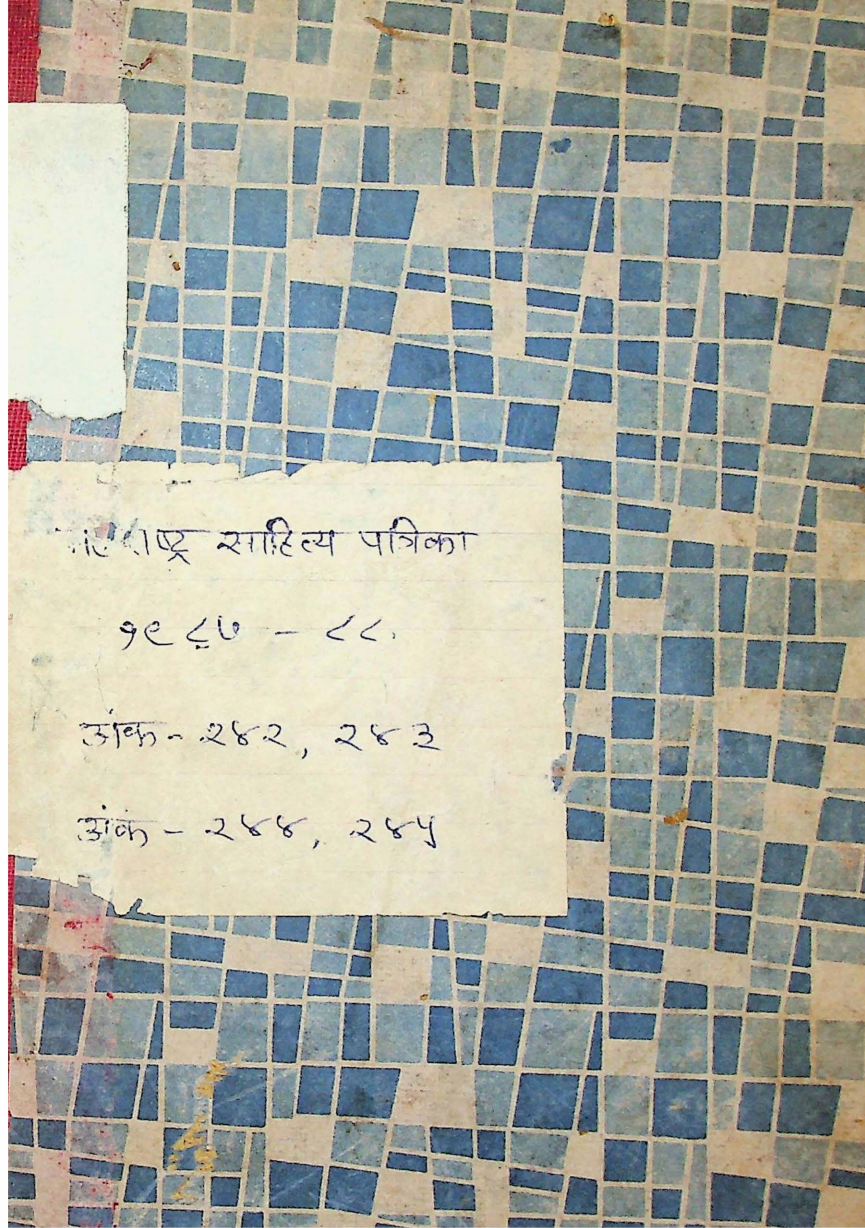 महाराष्ट्र साहित्य पत्रिका
१९८७ - ८८.
अंक - २४२, २४३
अंक - २४४, २४५